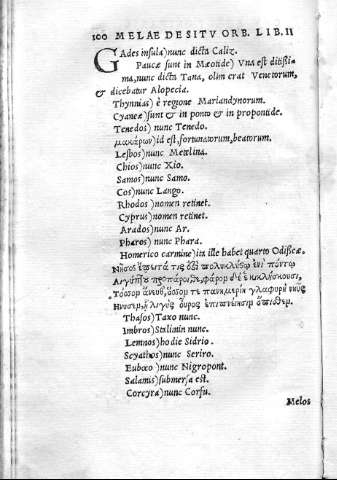 100 MELAE DE SITV ORB. LIB. II
GAdes insula) nunc dicta Caliz.
Paucæ sunt in Mæotide) Vna est ditissi-
ma, nunc dicta Tana, olim erat Venetorum,
& dicebatur Alopecia.
Thynnias) è regione Mariandynorum.
Cyaneæ) sunt & in ponto & in propontide.
Tenedos) nunc Tenedo.
μακάρων) id est, fortunatorum, beatorum.
Lesbos) nunc Metelina.
Chios) nunc Xio.
Samos) nunc Samo.
Cos) nunc Lango.
Rhodos) nomen retinet.
Cyprus) nomen retinet.
Arados) nunc Ar.
Pharos) nunc Phara.
Homerico carmine) ita ille habet quarto Odisseæ.
Νῆσος ἔπειτά τις ἔστι πολυκλύστῳ ἐνὶ πόντῳ
Αἰγύπτου προπάροιθε, φάρον δέ ἑ κικλήσκουσι,
Τόσσον ἄνευθ', ὅσσον τε πανημερίη γλαφυρὴ νηῦς
Ἤνυσεν, ᾗ λιγὺς οὖρος ἐπιπνείησιν ὄπισθεν.
Thasos) Taxo nunc.
Imbros) Stalimin nunc.
Lemnos) hodie Sidrio.
Scyathos) nunc Seriro.
Euboeo) nunc Nigropont.
Salamis) submersa est.
Corcyra) nunc Corfu.
Melos